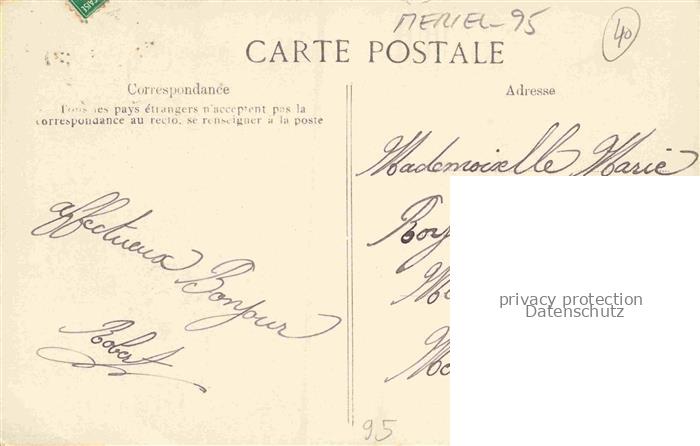 MERIEL-95
40
CARTE POSTALE
Correspondance
Tous les pays étrangers n'acceptent pas la
correspondance au recto, se renseigner à la poste
Adresse
Mademoiselle Marie
affectueux Bonjour
Robert
privacy protection
Datenschutz
95